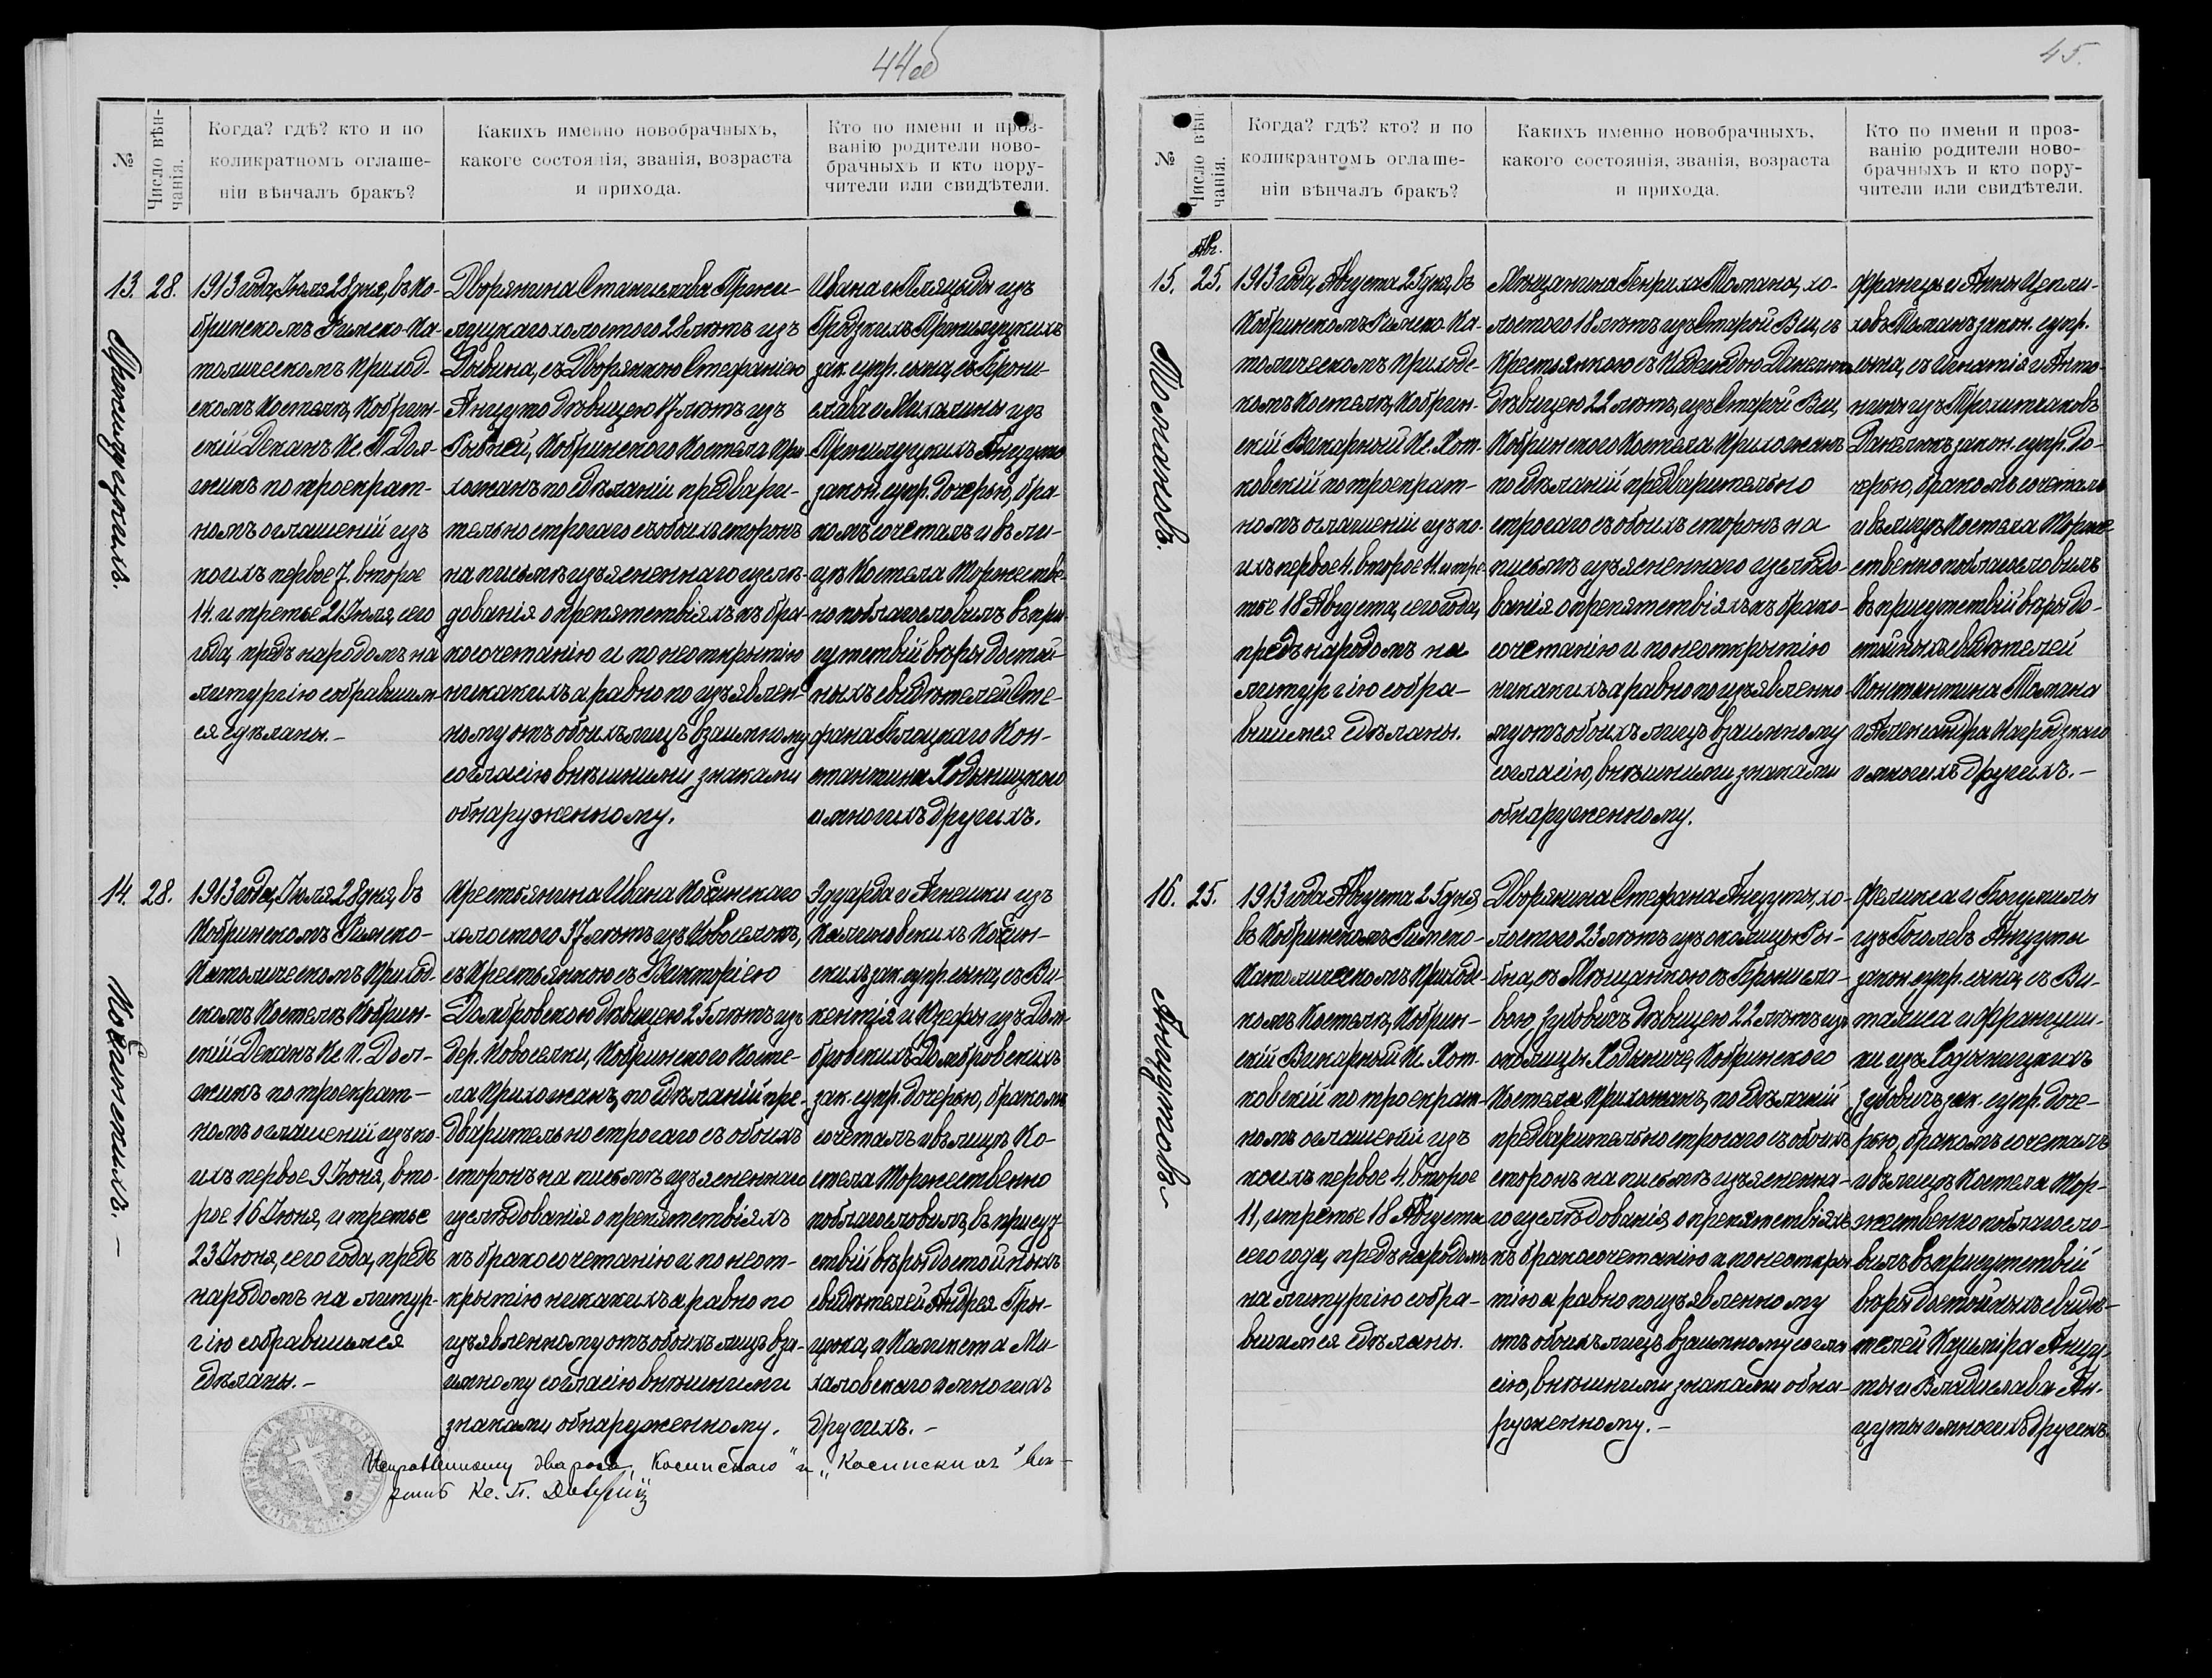 44об
№
Число вѣн-
чанія.
Когда? гдѣ? кто и по
коликратномъ оглаше-
ніи вѣнчалъ бракъ?
Какихъ именно новобрачныхъ,
какого состоянія, званія, возраста
и прихода.
Кто по имени и проз-
ванію родители ново-
брачныхъ и кто пору-
чители или свидѣтели.
13. 28.
1913 года, Іюля 28 дня, въ Ко-
бринскомъ Римско-Ка-
толическомъ Приход-
скомъ Костелѣ, Кобрин-
скій Деканъ Кс. П. Дол-
жикъ по троекрат-
номъ оглашеній изъ
коихъ первое 7. второе
14. и третье 21 Іюля, сего
года, предъ народомъ на
литургію собравшим-
ся сдѣланы.-
Дворянина Станислава Пржи-
луцкаго холостого 28 лѣтъ изъ
Дывина, съ Дворянкою Стефаніею
Анцуто дѣвицею 17 лѣтъ изъ
Рыбней, Кобринского Костела При-
хожанъ по сдѣланій предвари-
тельно строгаго съ обоихъ сторонъ
на письмѣ изъясненнаго изслѣ-
дованія о препятствіяхъ къ бра-
косочетанію и по неоткрытію
никакихъ а равно по изъявлен-
ному отъ обоихъ лицъ взаимному
согласію внѣшними знаками
обнаруженному.
Ивана и Пляциды изъ
Гродзкихъ Пржилуцкихъ
зак. супр. сына, съ Брони-
слава и Михалины изъ
Пржилуцкихъ Анцуто
закон. супр. дочерью, бра-
комъ сочеталъ и въ ли-
цѣ Костела Торжестве-
но поблагословилъ въ при-
сутствій вѣры достой-
ныхъ свидѣтелей Сте-
фана Климцкаго Кон-
стантина Ходыницкаго
и многихъ другихъ.
Пржилуцкихъ.
14. 28.
1913 года, Іюля 28 дня, въ
Кобринскомъ Римско-
Католическомъ Приход-
скомъ Костелѣ Кобрин-
скій Деканъ Кс. П. Дол-
жикъ по троекрат-
номъ оглашеній изъ ко-
ихъ первое 9 Іюня, вто-
рое 16 Іюня, и третье
23 Іюня, сего года, предъ
народомъ на литур-
гію собравшимся
сдѣланы.-
Крестьянина Ивана Косинскаго
холостого 37 лѣтъ изъ Новоселокъ,
съ Крестьянкою съ Викторіею
Домбровскою дѣвицею 25 лѣтъ изъ
дер. Новоселки, Кобринского Косте-
ла Прихожанъ, по сдѣланій пре-
дварительно строгаго съ обоихъ
сторонъ на письмѣ изъясненнаго
изслѣдованія о препятствіяхъ
къ бракосочетанію и по неот-
крытію никакихъ а равно по
изъявленному отъ обоихъ лицъ вза-
имному согласію внѣшними
знаками обнаруженному.
Эдуарда и Агнешки изъ
Калиновскихъ Косин-
скихъ зак. супр. сына, съ Ви-
кентія и Юзефы изъ Дом-
бровскихъ Домбровскихъ
зак. супр. дочерью, бракомъ
сочеталъ и въ лицѣ Ко-
стела Торжественно
поблагословилъ, въ присут-
ствій вѣры достойныхъ
свидѣтелей Андрея Гры-
цюка, и Каликста Ми-
халовскаго и многихъ
другихъ.-
Косинскихъ.-
Исправленному два раза „Косинскаго" и „Косинскихъ" вѣ-
рить Кс. П.
45.
№
Число вѣн-
чанія.
Когда? гдѣ? кто? и по
коликрантомъ оглаше-
ніи вѣнчалъ бракъ?
Какихъ именно новобрачныхъ,
какого состоянія, званія, возраста
и прихода.
Кто по имени и проз-
ванію родители ново-
брачныхъ и кто пору-
чители или свидѣтели.
Авг.
15. 25.
1913 года, Августа 25 дня, въ
Кобринскомъ Римско-Ка-
толическомъ Приходс-
комъ Костелѣ, Кобрин-
скій Викарный Кс. Хот-
ковскій по троекрат-
номъ оглашеній изъ ко-
ихъ первое 4. второе 11. и тре-
тье 18 Августа, сего года,
предъ народомъ на
литургію собра-
вшимся сдѣланы.
Мѣщанина Генриха Томана, хо-
лостого 18 лѣтъ изъ Старой Вси, съ
Крестьянкою съ Надеждою Данелюкъ
дѣвицею 22 лѣтъ, изъ Старой Вси,
Кобринского Костела Прихожанъ
по сдѣланій предварительно
строгаго съ обоихъ сторонъ на
письмѣ изъясненнаго изслѣдо-
ванія о препятствіяхъ къ брако-
сочетанію и по неоткрытію
никакихъ а равно по изъявленно-
му отъ обоихъ лицъ взаимному
согласію, внѣшними знаками
обнаруженному.
Францы и Анны Цепли-
ховъ Томанъ закон. супр.
сына, съ Игнатія и Анто-
нины изъ Пролишчаковъ
Данелюкъ закон. супр. до-
черью, бракомъ сочеталъ
и въ лицѣ Костела Торже-
ственно поблагословилъ
въ присутствій вѣры до-
стойныхъ свидѣтелей
Контантина Томана
и Александра Нагродзкаго
и многихъ другихъ.-
Томановъ.
16. 25.
1913 года Августа 25 дня
въ Кобринскомъ Римско-
Католическомъ Приходс-
комъ Костелѣ, Кобрин-
скій Викарный Кс. Хот-
ковскій по троекрат-
номъ оглашеній изъ
коихъ первое 4. второе
11, и третье 18 Августа
сего года, предъ народомъ
на литургію собра-
вшимся сдѣланы.
Дворянина Стефана Анцуты, хо-
лостого 23 лѣтъ изъ околицы Ры-
бна, съ Мѣщанкою съ Брониcла-
вою Зубовичъ дѣвицею 22 лѣтъ изъ
околицы Ходыниче, Кобринского
Костела Прихожанъ, по сдѣланій
предварительно строгаго съ обоихъ
сторонъ на письмѣ изъясненна-
го изслѣдованія о препятствіяхъ
къ бракосочетанію и по неоткры-
тію а равно по изъявленному
отъ обоихъ лицъ взаимному согла-
сію, внѣшними знаками обна-
руженному.-
Феликса и Богумилы
изъ Гоголевъ Анцуты
закон. супр. сына, съ Ви-
талиса и Францыш-
ки изъ Ходыницкихъ
Зубовичъ зак. супр. доче-
рью, бракомъ сочеталъ
и въ лицѣ Костела Тор-
жественно поблагосло-
вилъ въ присутствій
вѣры достойныхъ свидѣ-
телей Казиміра Анцу-
ты и Владислава Ан-
цуты и многихъ другихъ.
Анцутовъ.-